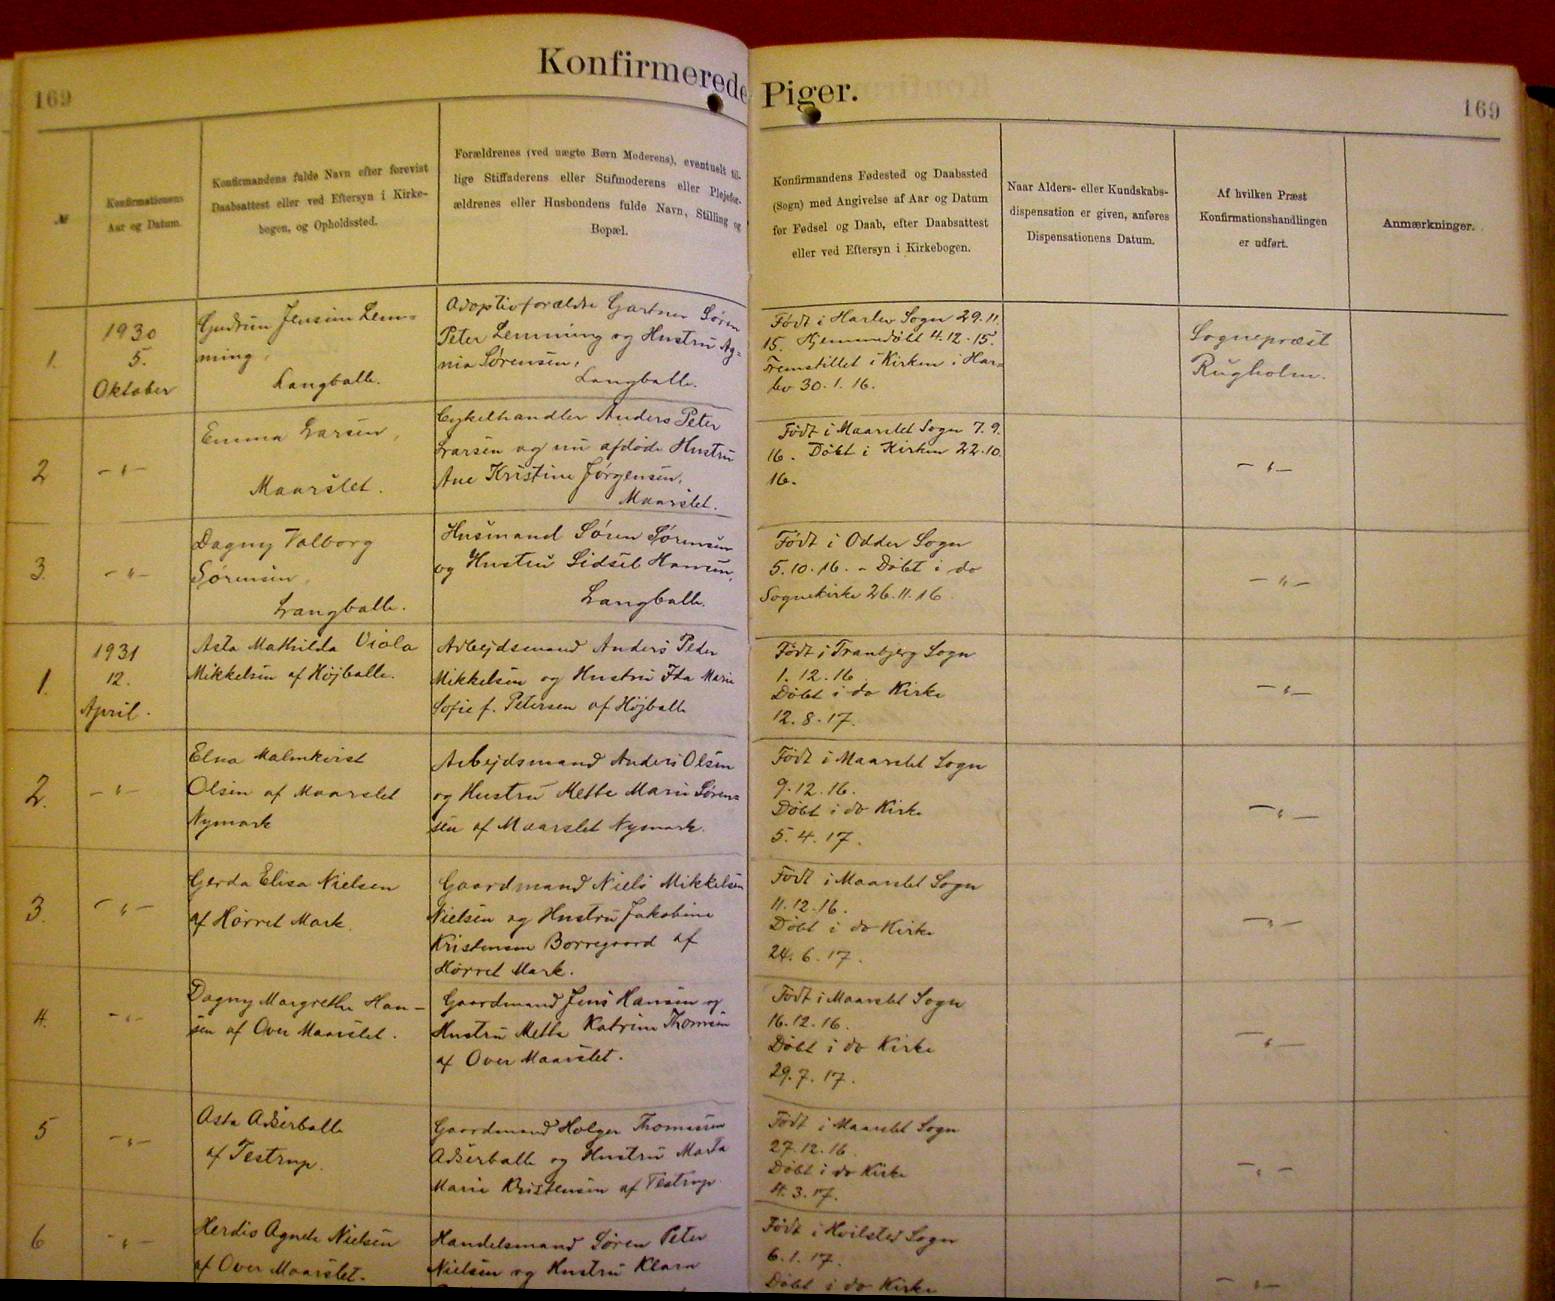 169
Konfirmerede Piger.
169
№
Konfirmationens
Aar og Datum.
Konfirmandens fulde Navn efter forevist
Daabsattest eller ved Eftersyn i Kirke-
bogen, og Opholdssted.
Forældrenes (ved uægte Børn Moderens), eventuelt til-
lige Stiffaderens eller Stifmoderens eller Plejefor-
ældrenes eller Husbondens fulde Navn, Stilling og
Bopæl.
Konfirmandens Fødested og Daabssted
(Sogn) med Angivelse af Aar og Datum
for Fødsel og Daab, efter Daabsattest
eller ved Eftersyn i Kirkebogen.
Naar Alders- eller Kundskabs-
dispensation er given, anføres
Dispensationens Datum.
Af hvilken Præst
Konfirmationshandlingen
er udført.
Anmærkninger.
1.
1930
5.
Oktober
Gudrun Jensine Lem=
ming,
Langballe.
Adoptivforældre Gartner Søren
Peter Lemming og Hustru Ag=
nia Sørensen,
Langballe.
Født i Harlev Sogn 29.11.
15. Hjemmedøbt 4.12.15.
Fremstillet i Kirken i Har=
lev 30.1.16.
Sognepræst
Rugholm.
2
- " -
Emma Larsen,
Maarslet.
Cykelhandler Anders Peter
Larsen og nu afdøde Hustru
Ane Kristine Jørgensen,
Maarslet.
Født i Maarslet Sogn 7.9.
16. Døbt i Kirken 22.10.
16.
- " -
3.
- " -
Dagny Valborg
Sørensen,
Langballe.
Husmand Søren Sørensen
og Hustru Sidsel Hansen,
Langballe.
Født i Odder Sogn
5.10.16. - Døbt i do
Sognekirke 26.11.16.
- " -
1.
1931
12.
April.
Asta Mathilda Viola
Mikkelsen af Højballe.
Arbejdsmand Anders Peder
Mikkelsen og Hustru Ida Marie
Sofie f. Petersen af Højballe
Født i Tranbjerg Sogn
1.12.16
Døbt i do Kirke
12.8.17.
- " -
2.
- " -
Elna Malmkvist
Olsen af Maarslet
Nymark
Arbejdsmand Anders Olsen
og Hustru Mette Marie Søren=
sen af Maarslet Nymark.
Født i Maarslet Sogn
9.12.16.
Døbt i do Kirke
5.4.17.
- " -
3.
- " -
Gerda Elisa Nielsen
af Hørret Mark.
Gaardmand Niels Mikkelsen
Nielsen og Hustru Jakobine
Kristensen Borregaard af
Hørret Mark.
Født i Maarslet Sogn
11.12.16.
Døbt i do Kirke
24.6.17.
- " -
4.
- " -
Dagny Margrethe Han-
sen af Over Maarslet.
Gaardmand Jens Hansen og
Hustru Mette Katrine Thomsen
af Over Maarslet.
Født i Maarslet Sogn
16.12.16.
Døbt i do Kirke
29.7.17.
- " -
5
- " -
Asta Adserballe
af Testrup.
Gaardmand Holger Thomassen
Adserballe og Hustru Marta
Marie Kristensen af Testrup.
Født i Maarslet Sogn
27.12.16.
Døbt i do Kirke
4.3.17.
- " -
6
- " -
Herdis Agnete Nielsen
af Over Maarslet.
Handelsmand Søren Peter
Nielsen og Hustru Klara
Født i Hvilsted Sogn
6.1.17.
Døbt i do Kirke
- " -